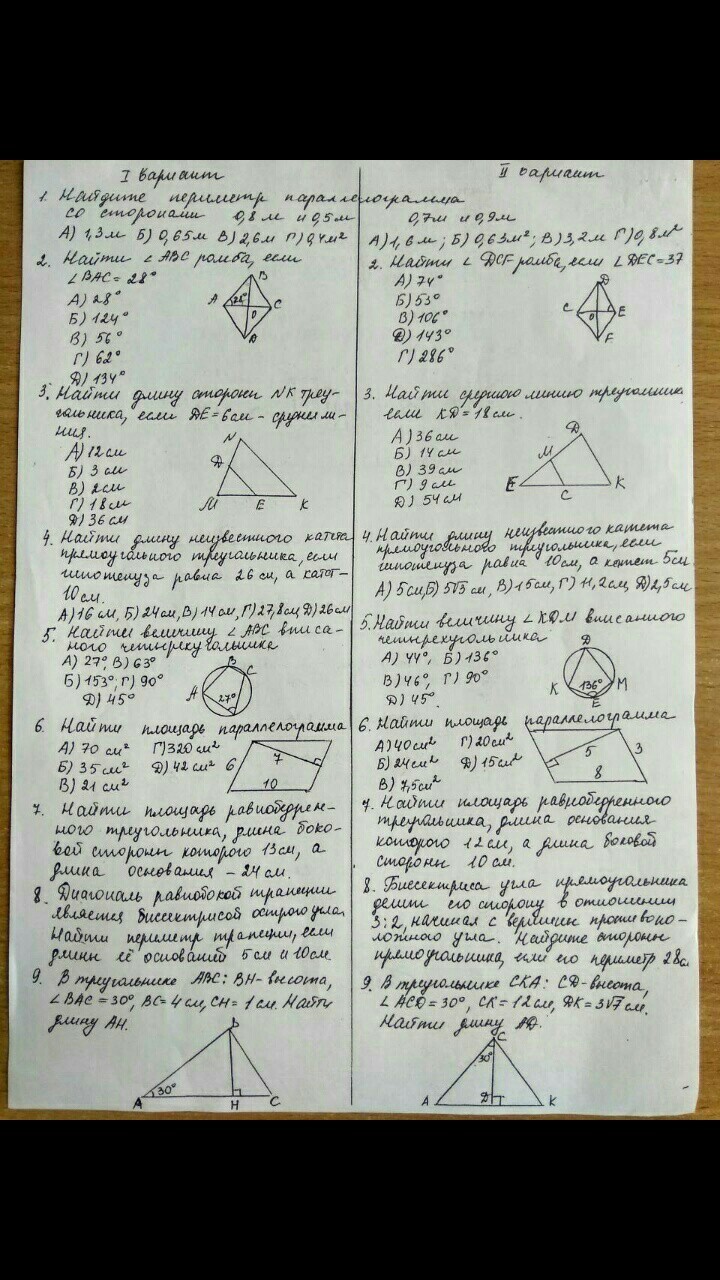 I вариант
1. Найдите периметр параллелограмма
со сторонами 0,8 м и 0,5 м
А) 1,3 м Б) 0,65 м В) 2,6 м Г) 0,4 м²
2. Найти ∠ABC ромба, если
∠BAC = 28°
А) 28°
Б) 124°
В) 56°
Г) 62°
Д) 134°
B
A 28° C
O
A
3. Найти длину стороны NK треу-
гольника, если DE = 6 см - средняя ли-
ния.
А) 12 см
Б) 3 см
В) 2 см
Г) 18 см
Д) 36 см
N
D
M E K
4. Найти длину неизвестного катета
прямоугольного треугольника, если
гипотенуза равна 26 см, а катет -
10 см.
А) 16 см, Б) 24 см, В) 14 см, Г) 27,8 см, Д) 26 см
5. Найти величину ∠ABC вписа-
ного четырехугольника
А) 27°, В) 63°
Б) 153°, Г) 90°
Д) 45°
B
C
A
27°
6. Найти площадь параллелограмма
А) 70 см² Г) 320 см²
Б) 35 см² Д) 42 см²
В) 21 см²
7
6
10
7. Найти площадь равнобедрен-
ного треугольника, длина боко-
вой стороны которого 13 см, а
длина основания - 24 см.
8. Диагональ равнобокой трапеции
является биссектрисой острого угла.
Найти периметр трапеции, если
длины её оснований 5 см и 10 см.
9. В треугольнике ABC: BH - высота,
∠BAC = 30°, BC = 4 см, CH = 1 см. Найти
длину AH.
B
30°
A H C
II вариант
0,7 м и 0,9 м
А) 1,6 м; Б) 0,63 м²; В) 3,2 м Г) 0,8 м²
2. Найти ∠ DCF ромба, если ∠DEC = 37
А) 74°
Б) 53°
В) 106°
Д) 143°
Г) 286°
D
C O E
F
3. Найти среднюю линию треугольника
если KD = 18 см.
А) 36 см
Б) 14 см
В) 39 см
Г) 9 см
Д) 54 см
D
M
E C K
4. Найти длину неизвестного катета
прямоугольного треугольника, если
гипотенуза равна 10 см, а катет 5 см
А) 5 см, Б) 5√3 см, В) 15 см, Г) 11,2 см, Д) 2,5 см
5. Найти величину ∠KDM вписанного
четырехугольника
А) 44°, Б) 136°
В) 46°, Г) 90°
Д) 45°
D
K M
136°
E
6. Найти площадь параллелограмма
А) 40 см² Г) 20 см²
Б) 24 см² Д) 15 см²
В) 7,5 см²
5
3
8
7. Найти площадь равнобедренного
треугольника, длина основания
которого 12 см, а длина боковой
стороны 10 см.
8. Биссектриса угла прямоугольника
делит его сторону в отношении
3:2, начиная с вершины противопо-
ложного угла. Найдите стороны
прямоугольника, если его периметр 28 см
9. В треугольнике CKA: CD - высота,
∠ACD = 30°, CK = 12 см, DK = 3√7 см.
Найти длину AD.
C
30°
A D K